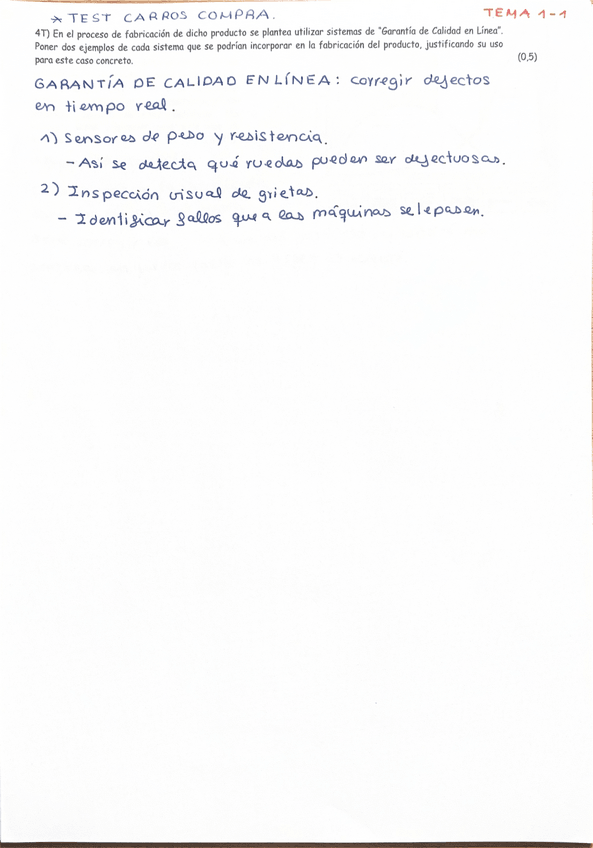 * TEST CARROS COMPRA.
TEMA 1-1
4T) En el proceso de fabricación de dicho producto se plantea utilizar sistemas de "Garantía de Calidad en Línea".
Poner dos ejemplos de cada sistema que se podrían incorporar en la fabricación del producto, justificando su uso
para este caso concreto.
(0,5)
GARANTÍA DE CALIDAD EN LÍNEA: corregir defectos
en tiempo real.
1) Sensores de peso y resistencia.
- Así se detecta qué ruedas pueden ser defectuosas.
2) Inspección visual de grietas.
- Identificar fallos que a las máquinas se le pasen.